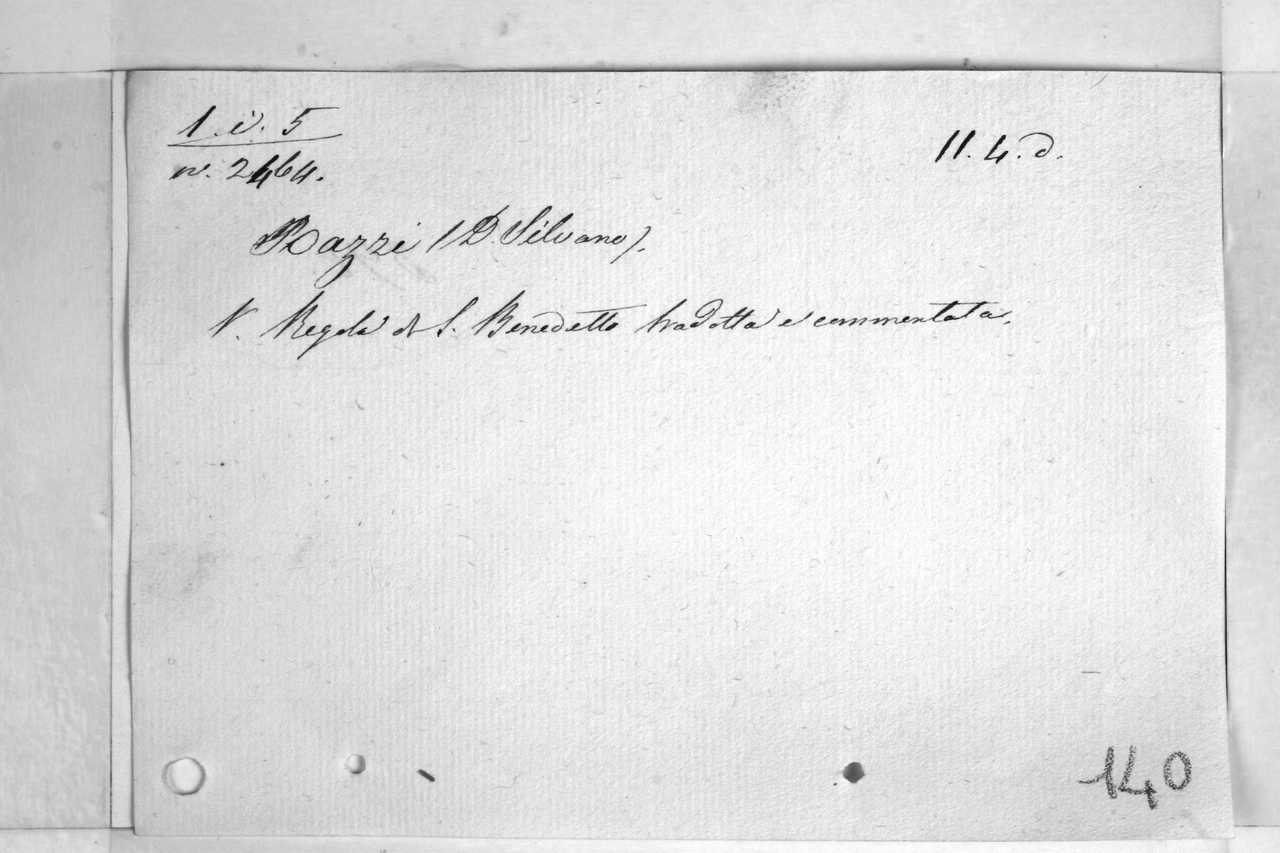 1. i. 5
n. 2464.
11. 4. d.
Razzi (D. Silvano).
V. Regola di S. Benedetto tradotta e commentata.
140